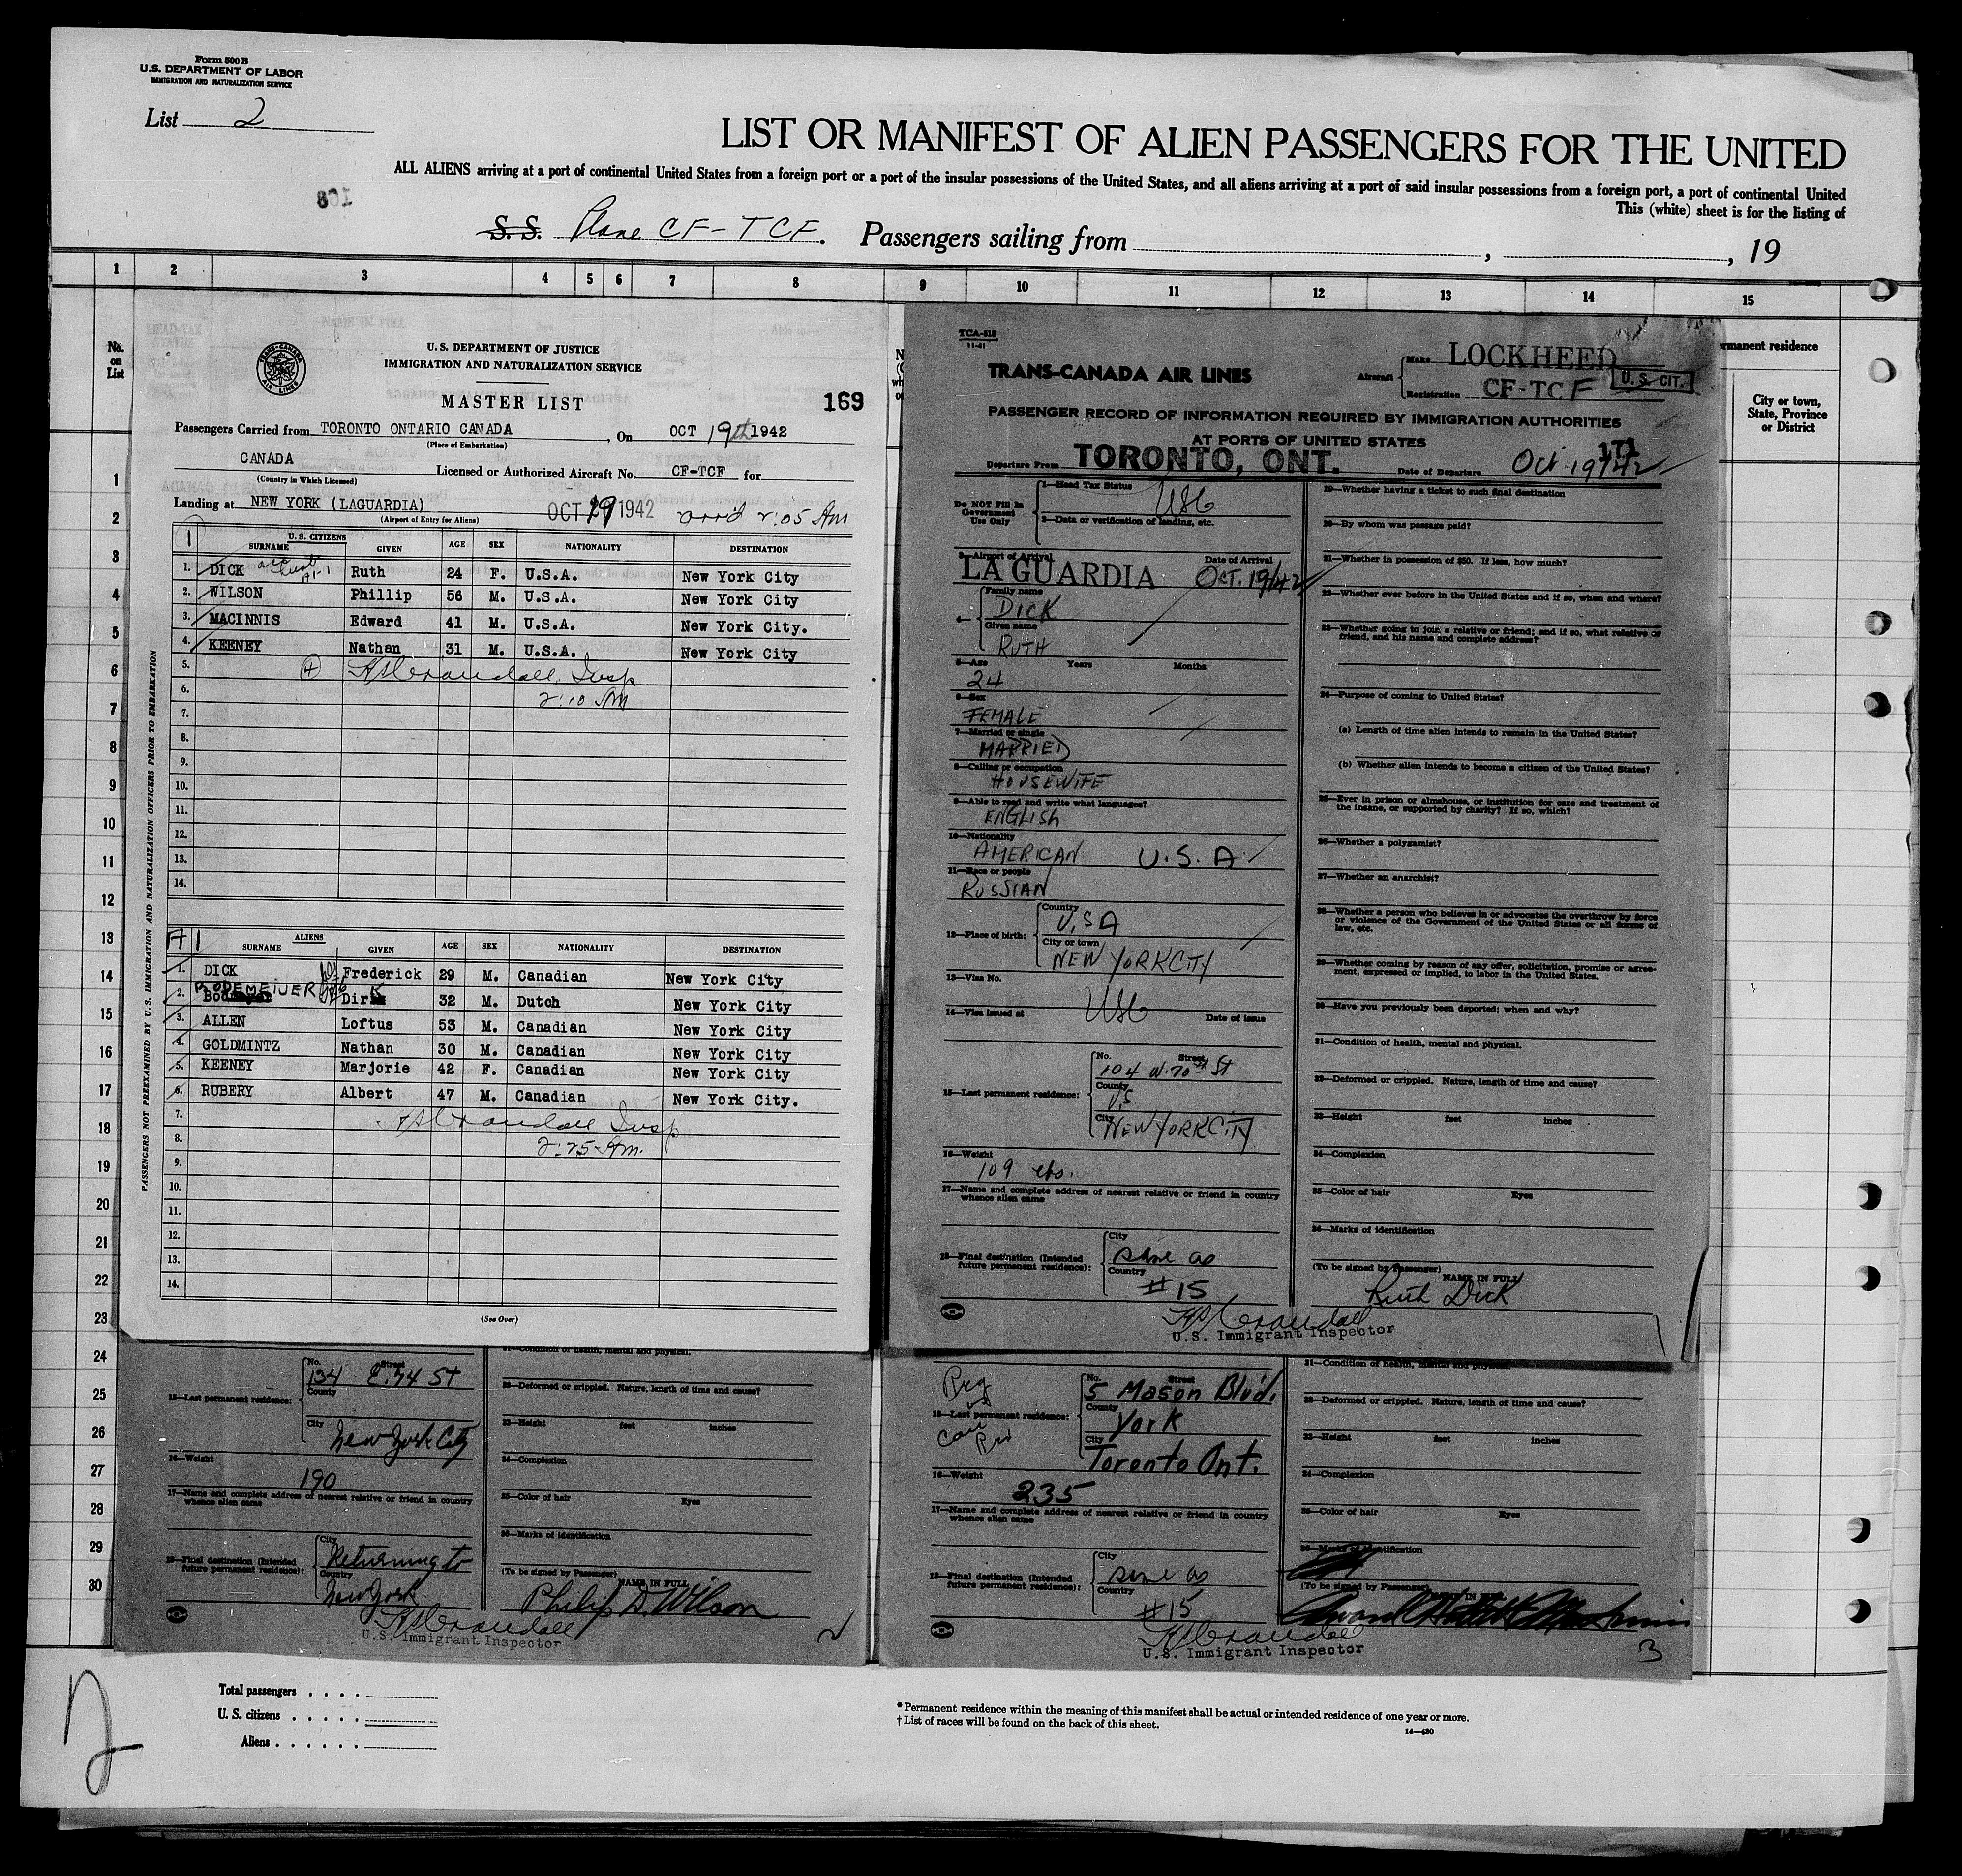 Form 500B
U.S. DEPARTMENT OF LABOR
IMMIGRATION AND NATURALIZATION SERVICE
List 2
LIST OR MANIFEST OF ALIEN PASSENGERS FOR THE UNITED
ALL ALIENS arriving at a port of continental United States from a foreign port or a port of the insular possessions of the United States, and all aliens arriving at a port of said insular possessions from a foreign port, a port of continental United
This (white) sheet is for the listing of
S.S. Plane CF-TCF. Passengers sailing from , , 19
1 2 3 4 5 6 7 8 9 10 11 12 13 14 15
No. on List
rmanent residence
City or town, State, Province or District
1
2
3
4
5
6
7
8
9
10
11
12
13
14
15
16
17
18
19
20
21
22
23
24
25
26
27
28
29
30
TRANS-CANADA AIR LINES
U.S. DEPARTMENT OF JUSTICE
IMMIGRATION AND NATURALIZATION SERVICE
MASTER LIST
169
Passengers Carried from TORONTO ONTARIO CANADA, On OCT 19th 1942
(Place of Embarkation)
CANADA Licensed or Authorized Aircraft No. CF-TCF for
(Country in Which Licensed)
Landing at NEW YORK (LAGUARDIA) OCT 19 1942 arr'd 2:05 AM
(Airport of Entry for Aliens)
PASSENGERS NOT PREEXAMINED BY U.S. IMMIGRATION AND NATURALIZATION OFFICERS PRIOR TO EMBARKATION
1
U.S. CITIZENS
SURNAME GIVEN AGE SEX NATIONALITY DESTINATION
1. DICK Ruth 24 F. U.S.A. New York City
2. WILSON Phillip 56 M. U.S.A. New York City
3. MACINNIS Edward 41 M. U.S.A. New York City.
4. KEENEY Nathan 31 M. U.S.A. New York City
5. 4 Crandall, Insp
6. 2:10 AM
7.
8.
9.
10.
11.
12.
13.
14.
A1
ALIENS
SURNAME GIVEN AGE SEX NATIONALITY DESTINATION
1. DICK Frederick 29 M. Canadian New York City
2. BODEMEIJER Dirk 32 M. Dutch New York City
3. ALLEN Loftus 53 M. Canadian New York City
4. GOLDMINTZ Nathan 30 M. Canadian New York City
5. KEENEY Marjorie 42 F. Canadian New York City
6. RUBERY Albert 47 M. Canadian New York City.
7. Crandall Insp
8. 2:25 AM.
9.
10.
11.
12.
13.
14.
(See Over)
TCA-518
11-41
TRANS-CANADA AIR LINES
Aircraft Make LOCKHEED
Registration CF-TCF
U.S. CIT.
PASSENGER RECORD OF INFORMATION REQUIRED BY IMMIGRATION AUTHORITIES
AT PORTS OF UNITED STATES
171
Departure From TORONTO, ONT. Date of Departure Oct 19/42
Do NOT Fill In Government Use Only
1—Head Tax Status USC
2—Data or verification of landing, etc.
3—Airport of Arrival Date of Arrival
LA GUARDIA OCT. 19/42
4— Family name
DICK
Given name
RUTH
5—Age Years Months
24
6—Sex
FEMALE
7—Married or single
MARRIED
8—Calling or occupation
HOUSEWIFE
9—Able to read and write what languages?
ENGLISH
10—Nationality
AMERICAN U.S.A
11—Race or people
RUSSIAN
12—Place of birth: Country
U.S.A
City or town
NEW YORK CITY
13—Visa No.
USC
14—Visa issued at Date of issue
15—Last permanent residence: No. Street
104 W. 70th St
County
U.S.
City
NEW YORK CITY
16—Weight
109 lbs.
17—Name and complete address of nearest relative or friend in country whence alien came
18—Final destination (Intended future permanent residence): City
same as
Country
#15
19—Whether having a ticket to such final destination
20—By whom was passage paid?
21—Whether in possession of $50. If less, how much?
22—Whether ever before in the United States and if so, when and where?
23—Whether going to join a relative or friend; and if so, what relative or friend, and his name and complete address?
24—Purpose of coming to United States?
(a) Length of time alien intends to remain in the United States?
(b) Whether alien intends to become a citizen of the United States?
25—Ever in prison or almshouse, or institution for care and treatment of the insane, or supported by charity? If so, which?
26—Whether a polygamist?
27—Whether an anarchist?
28—Whether a person who believes in or advocates the overthrow by force or violence of the Government of the United States or all forms of law, etc.
29—Whether coming by reason of any offer, solicitation, promise or agreement, expressed or implied, to labor in the United States.
30—Have you previously been deported; when and why?
31—Condition of health, mental and physical.
32—Deformed or crippled. Nature, length of time and cause?
33—Height feet inches
34—Complexion
35—Color of hair Eyes
36—Marks of identification
(To be signed by Passenger)
NAME IN FULL
Ruth Dick
Crandall
U.S. Immigrant Inspector
31—Condition of health, mental and physical.
15—Last permanent residence: No. Street
134 E. 74 St
County
City
New York City
16—Weight
190
17—Name and complete address of nearest relative or friend in country whence alien came
18—Final destination (Intended future permanent residence): City
Returning to
Country
New York
32—Deformed or crippled. Nature, length of time and cause?
33—Height feet inches
34—Complexion
35—Color of hair Eyes
36—Marks of identification
(To be signed by Passenger)
NAME IN FULL
Philip D. Wilson
Crandall
U.S. Immigrant Inspector
2
15—Last permanent residence: No. Street
5 Mason Blvd.
County
York
City
Toronto Ont.
16—Weight
235
17—Name and complete address of nearest relative or friend in country whence alien came
18—Final destination (Intended future permanent residence): City
same as
Country
#15
31—Condition of health, mental and physical.
32—Deformed or crippled. Nature, length of time and cause?
33—Height feet inches
34—Complexion
35—Color of hair Eyes
36—Marks of identification
(To be signed by Passenger)
Crandall
U.S. Immigrant Inspector
3
2
Total passengers . . . .
U. S. citizens . . . . .
Aliens . . . . . .
* Permanent residence within the meaning of this manifest shall be actual or intended residence of one year or more.
† List of races will be found on the back of this sheet.
14—430